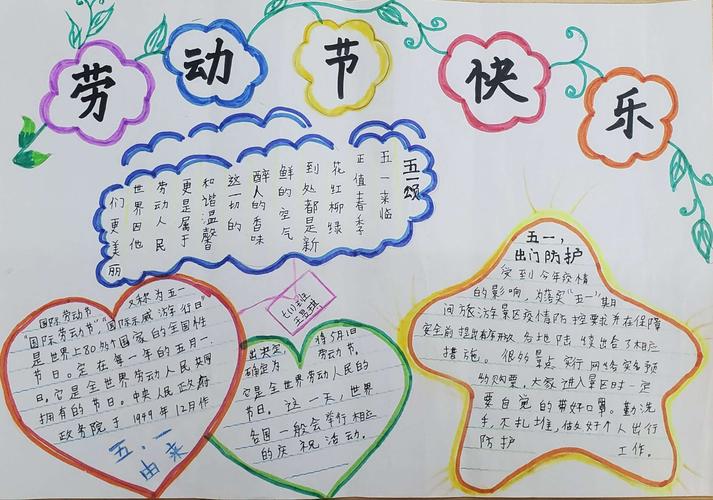 劳动节快乐
五一颂
五一来临
正值春季
花红柳绿
到处都是新
鲜的空气
醉人的香味
这一切的
和谐温馨
更是属于
劳动人民
世界因他
们更美丽
七(1)班
国际劳动节 又称为五一
"国际劳动节"、"国际示威游行日"
是世界上80多个国家的全国性
节日。定在每一年的五月一
日。它是全世界劳动人民共同
拥有的节日。中央人民政府
政务院于1949年12月作
五.一
由来
出决定，将5月1日
确定为 劳动节。
它是全世界劳动人民的
节日。这一天，世界
各国一般会举行相应
的庆祝活动。
五一，
出门防护
受到今年疫情
的影响，为落实"五一"期
间旅游景区疫情防控要求并在保障
安全前提出有序开放 各地陆续出台了相应
措施。很多景点实行网络实名预
约购票，大家进入景区时一定
要自觉的带好口罩。勤洗
手，不扎堆，做好个人出行
防护工作。